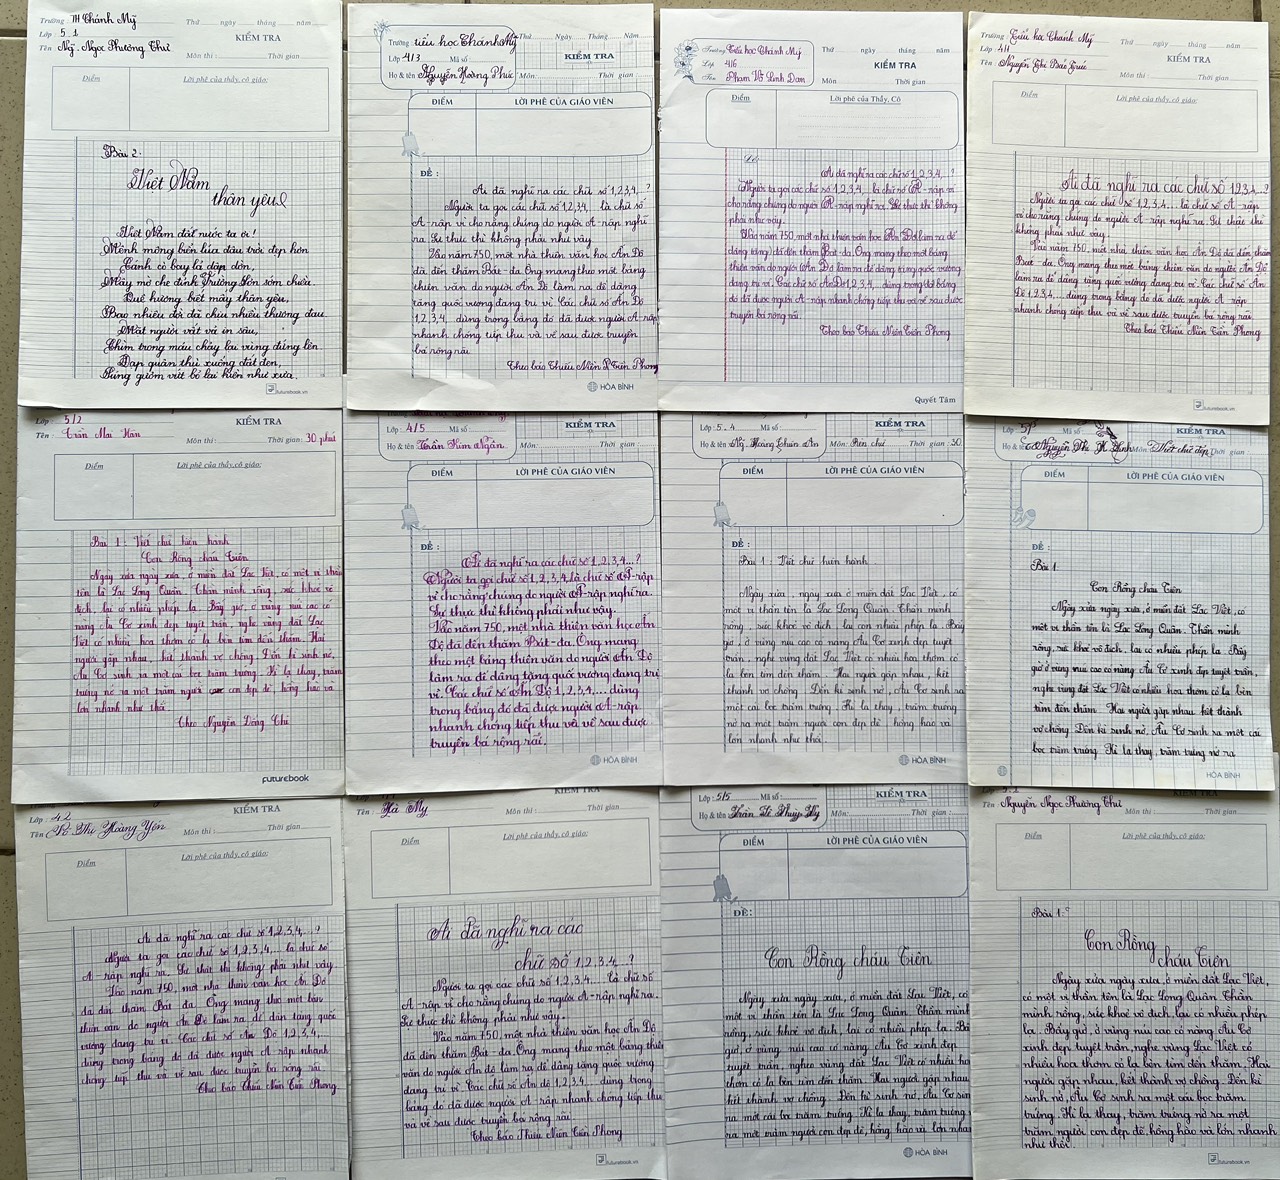 Trường : TH Thánh Mỹ
Thứ ngày tháng năm
Lớp : 5.1
KIỂM TRA
Tên : Ng. Ngọc Phương Thư
Môn thi : Thời gian :
Điểm
Lời phê của thầy, cô giáo:
Bài 2:
Việt Nam
thân yêu
Việt Nam đất nước ta ơi!
Mênh mông biển lúa đâu trời đẹp hơn
Cánh cò bay lả dập dờn,
Mây mờ che đỉnh Trường Sơn sớm chiều.
Quê hương biết mấy thân yêu,
Bao nhiêu đời đã chịu nhiều thương đau
Mặt người vất vả in sâu,
Chìm trong máu chảy lại vùng đứng lên
Đạp quân thù xuống đất đen,
Súng gươm vứt bỏ lại hiền như xưa.
futurebook.vn
Trường : tiểu học Thánh Mỹ
Thứ Ngày Tháng Năm
Lớp : 4/3 Mã số :
KIỂM TRA
Họ & tên : Nguyễn Hoàng Phúc
Môn: Thời gian :
ĐIỂM
LỜI PHÊ CỦA GIÁO VIÊN
ĐỀ :
Ai đã nghĩ ra các chữ số 1,2,3,4,...?
Người ta gọi các chữ số 1,2,3,4, là chữ số
A-rập vì cho rằng chúng do người A-rập nghĩ
ra. Sự thực thì không phải như vậy
Vào năm 750, một nhà thiên văn học Ấn Độ
đã đến thăm Bát-đa. Ông mang theo một bảng
thiên văn do người Ấn Độ làm ra để dâng
tặng quốc vương đang trị vì. Các chữ số Ấn Độ
1,2,3,4, dùng trong bảng đó đã được người A-rập
nhanh chóng tiếp thu và về sau được truyền
bá rộng rãi
Theo báo Thiếu Niên Tiền Phong
HÒA BÌNH
Trường Tiểu học Thánh Mỹ
Thứ ngày tháng năm
Lớp 4/6
KIỂM TRA
Tên Phạm Võ Linh Đan
Môn Thời gian
Điểm
Lời phê của Thầy, Cô
Ai đã nghĩ ra các chữ số 1,2,3,4,...?
Người ta gọi các chữ số 1,2,3,4,... là chữ số A-rập vì
cho rằng chúng do người A-rập nghĩ ra. Sự thực thì không
phải như vậy.
Vào năm 750, một nhà thiên văn học Ấn Độ làm ra để
dâng tặng) đã đến thăm Bát-đa. Ông mang theo một bảng
thiên văn do người Ấn Độ làm ra để dâng tặng quốc vương
đang trị vì. Các chữ số Ấn Độ 1,2,3,4,... dùng trong đó bảng
đó đã được người A-rập nhanh chóng tiếp thu và về sau được
truyền bá rộng rãi.
Theo báo Thiếu Niên Tiền Phong
Quyết Tâm
Trường : Tiểu học Thánh Mỹ
Thứ ngày tháng năm
Lớp : 4/1
KIỂM TRA
Tên : Nguyễn Thị Bảo Trúc
Môn thi : Thời gian :
Điểm
Lời phê của thầy, cô giáo:
Ai đã nghĩ ra các chữ số 1,2,3,4,...?
Người ta gọi các chữ số 1,2,3,4,... là chữ số A-rập
vì cho rằng chúng do người A-rập nghĩ ra. Sự thật thì
không phải như vậy.
Vào năm 750, một nhà thiên văn học Ấn Độ đã đến thăm
Bát-đa. Ông mang theo một bảng thiên văn do người Ấn Độ
làm ra để dâng tặng quốc vương đang trị vì. Các chữ số Ấn
Độ 1,2,3,4,... dùng trong bảng đó đã được người A-rập
nhanh chóng tiếp thu và về sau được truyền bá rộng rãi.
Theo báo Thiếu Niên Tiền Phong
futurebook.vn
Lớp : 5/2
KIỂM TRA
Tên : Trần Mai Hân
Môn thi : Thời gian : 30 phút
Điểm
Lời phê của thầy, cô giáo:
Bài 1 : Viết chữ hiện hành
Con Rồng cháu Tiên
Ngày xửa ngày xưa, ở miền đất Lạc Việt, có một vị thần
tên là Lạc Long Quân. Thần mình rồng, sức khoẻ vô
địch, lại có nhiều phép lạ. Bấy giờ, ở vùng núi cao có
nàng Âu Cơ xinh đẹp tuyệt trần, nghe vùng đất Lạc
Việt có nhiều hoa thơm cỏ lạ bèn tìm đến thăm. Hai
người gặp nhau, kết thành vợ chồng. Đến kì sinh nở,
Âu Cơ sinh ra một cái bọc trăm trứng. Kì lạ thay, trăm
trứng nở ra một trăm người con đẹp đẽ, hồng hào và
lớn nhanh như thổi.
Theo Nguyễn Đổng Chi
futurebook
Lớp : 4/5 Mã số :
KIỂM TRA
Họ & tên : Trần Kim Ngân
Môn: Thời gian :
ĐIỂM
LỜI PHÊ CỦA GIÁO VIÊN
ĐỀ :
Ai đã nghĩ ra các chữ số 1,2,3,4...?
Người ta gọi chữ số 1,2,3,4, là chữ số A-rập
vì cho rằng chúng do người A-rập nghĩ ra.
Sự thực thì không phải như vậy.
Vào năm 750, một nhà thiên văn học Ấn
Độ đã đến thăm Bát-đa. Ông mang
theo một bảng thiên văn do người Ấn Độ
làm ra để dâng tặng quốc vương đang trị
vì. Các chữ số Ấn Độ 1,2,3,4,... dùng
trong bảng đó đã được người A-rập
nhanh chóng tiếp thu và về sau được
truyền bá rộng rãi.
HÒA BÌNH
Lớp : 5.4 Mã số :
KIỂM TRA
Họ & tên : Ng. Hoàng An
Môn: Rèn chữ Thời gian : 30.
ĐIỂM
LỜI PHÊ CỦA GIÁO VIÊN
ĐỀ :
Bài 1 : Viết chữ hiện hành
Ngày xửa, ngày xưa, ở miền đất Lạc Việt, có
một vị thần tên là Lạc Long Quân. Thần mình
rồng, sức khoẻ vô địch, lại có nhiều phép lạ. Bấy
giờ, ở vùng núi cao có nàng Âu Cơ xinh đẹp tuyệt
trần, nghe vùng đất Lạc Việt có nhiều hoa thơm cỏ
lạ bèn tìm đến thăm. Hai người gặp nhau, kết
thành vợ chồng. Đến kì sinh nở, Âu Cơ sinh ra
một cái bọc trăm trứng. Kì lạ thay, trăm trứng
nở ra một trăm người con đẹp đẽ, hồng hào và
lớn nhanh như thổi.
HÒA BÌNH
KIỂM TRA
Nguyễn Thị
Môn: Viết chữ đẹp Thời gian :
ĐIỂM
LỜI PHÊ CỦA GIÁO VIÊN
ĐỀ :
Bài 1:
Con Rồng cháu Tiên
Ngày xửa ngày xưa, ở miền đất Lạc Việt, có
một vị thần tên là Lạc Long Quân. Thần mình
rồng, sức khoẻ vô địch, lại có nhiều phép lạ. Bấy
giờ ở vùng núi cao có nàng Âu Cơ xinh đẹp tuyệt trần,
nghe vùng đất Lạc Việt có nhiều hoa thơm cỏ lạ bèn
tìm đến thăm. Hai người gặp nhau kết thành
vợ chồng. Đến kì sinh nở, Âu Cơ sinh ra một cái
bọc trăm trứng. Kì lạ thay, trăm trứng nở ra
HÒA BÌNH
Lớp : 4.2
KIỂM TRA
Tên : Thị Hoàng Yến
Môn thi : Thời gian :
Điểm
Lời phê của thầy, cô giáo:
Ai đã nghĩ ra các chữ số 1,2,3,4,...?
Người ta gọi các chữ số 1,2,3,4,... là chữ số
A-rập nghĩ ra. Sự thật thì không phải như vậy.
Vào năm 750, một nhà thiên văn học Ấn Độ
đã đến thăm Bát đa. Ông mang theo một bản
thiên văn do người Ấn Độ làm ra để dân tặng quốc
vương đang trị vì. Các chữ số Ấn Độ 1,2,3,4,
dùng trong bảng đó đã được người A-rập nhanh
chóng tiếp thu và về sau được truyền bá rộng rãi.
Theo báo Thiếu Niên Tiền Phong.
Hà My
KIỂM TRA
Môn thi : Thời gian
Điểm
Lời phê của thầy, cô giáo:
Ai đã nghĩ ra các
chữ số 1,2,3,4,...?
Người ta gọi các chữ số 1,2,3,4,... là chữ số
A-rập vì cho rằng chúng do người A-rập nghĩ ra.
Sự thực thì không phải như vậy.
Vào năm 750, một nhà thiên văn học Ấn Độ
đã đến thăm Bát-đa. Ông mang theo một bảng thiên
văn do người Ấn Độ làm ra để dâng tặng quốc vương
đang trị vì. Các chữ số Ấn độ 1,2,3,4,... dùng trong
bảng đó đã được người A-rập nhanh chóng tiếp thu
và về sau được truyền bá rộng rãi.
Theo báo Thiếu Niên Tiền Phong
futurebook.vn
Lớp : 5/5 Mã số :
KIỂM TRA
Họ & tên : Trần Lê Thuỵ Vy
Môn: Thời gian :
ĐIỂM
LỜI PHÊ CỦA GIÁO VIÊN
ĐỀ:
Con Rồng cháu Tiên
Ngày xửa ngày xưa, ở miền đất Lạc Việt, có
một vị thần tên là Lạc Long Quân. Thần mình
rồng, sức khoẻ vô địch, lại có nhiều phép lạ. Bấy
giờ, ở vùng núi cao có nàng Âu Cơ xinh đẹp
tuyệt trần, nghe vùng đất Lạc Việt có nhiều hoa
thơm cỏ lạ bèn tìm đến thăm. Hai người gặp nhau,
kết thành vợ chồng. Đến kì sinh nở, Âu Cơ sinh
ra một cái bọc trăm trứng. Kì lạ thay, trăm trứng
ra một trăm người con đẹp đẽ, hồng hào và lớn nhanh
HÒA BÌNH
Lớp : 5.1
KIỂM TRA
Tên : Nguyễn Ngọc Phương Thư
Môn thi : Thời gian :
Điểm
Lời phê của thầy, cô giáo:
Bài 1:
Con Rồng
cháu Tiên
Ngày xửa ngày xưa, ở miền đất Lạc Việt,
có một vị thần tên là Lạc Long Quân. Thần
mình rồng, sức khoẻ vô địch, lại có nhiều phép
lạ. Bấy giờ, ở vùng núi cao có nàng Âu Cơ
xinh đẹp tuyệt trần, nghe vùng Lạc Việt có
nhiều hoa thơm cỏ lạ bèn tìm đến thăm. Hai
người gặp nhau, kết thành vợ chồng. Đến kì
sinh nở, Âu Cơ sinh ra một cái bọc trăm
trứng. Kì lạ thay, trăm trứng nở ra một
trăm người con đẹp đẽ, hồng hào và lớn nhanh
như thổi.
futurebook.vn